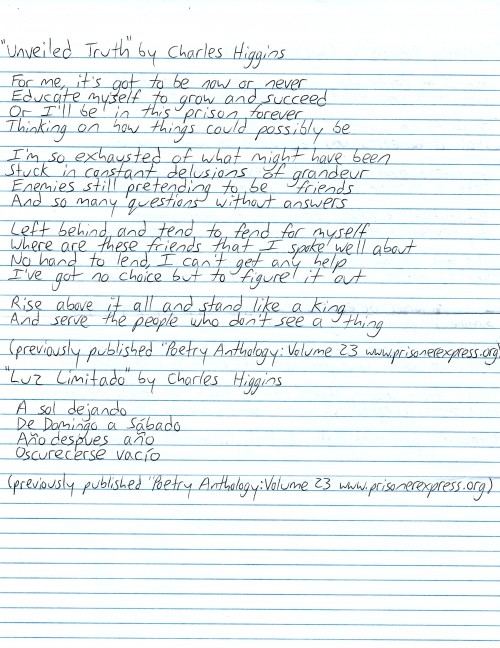 "Unveiled Truth" by Charles Higgins
For me, it's got to be now or never
Educate myself to grow and succeed
Or I'll be in this prison forever
Thinking on how things could possibly be
I'm so exhausted of what might have been
Stuck in constant delusions of grandeur
Enemies still pretending to be friends
And so many questions without answers
Left behind and tend to fend for myself
Where are these friends that I spoke well about
No hand to lend, I can't get any help
I've got no choice but to figure it out
Rise above it all and stand like a king
And serve the people who don't see a thing
(previously published "Poetry Anthology: Volume 23 www.prisonerexpress.org)
"Luz Limitado" by Charles Higgins
A sol dejando
De Domingo a Sábado
Año despues año
Oscurecerse vacío
(previously published "Poetry Anthology: Volume 23 www.prisonerexpress.org)